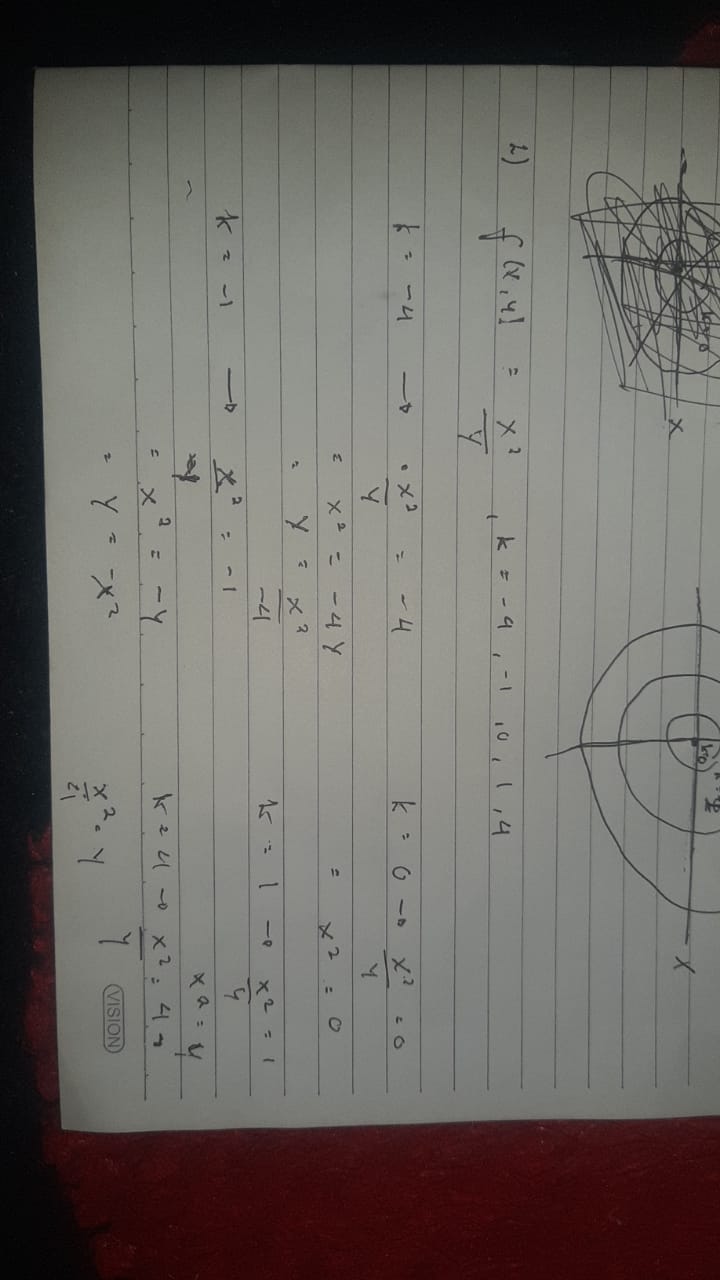 k=0
X
k=0
X
2) f(x,y] = x²/y , k = -4, -1, 0, 1, 4
k = -4 → x²/y = -4
= x² = -4y
= y = x²/-4
k = -1 → x²/y = -1
= x² = -y
= y = -x²
k = 0 → x²/y = 0
= x² = 0
k = 1 → x²/y = 1
x² = y
k = 4 → x²/y = 4
x²/4 = y
VISION